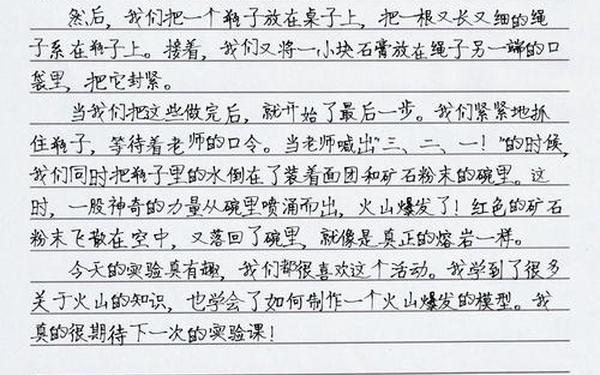 然后，我们把一个瓶子放在桌子上，把一根又长又细的绳
子系在瓶子上。接着，我们又将一小块石膏放在绳子另一端的口
袋里，把它封紧。
当我们把这些做完后，就开始了最后一步。我们紧紧地抓
住瓶子，等待着老师的口令。当老师喊出"三、二、一！"的时候，
我们同时把瓶子里的水倒在了装着面团和矿石粉末的碗里。这
时，一股神奇的力量从碗里喷涌而出，火山爆发了！红色的矿石
粉末飞散在空中，又落回了碗里，就像是真正的熔岩一样。
今天的实验真有趣，我们都很喜欢这个活动。我学到了很多
关于火山的知识，也学会了如何制作一个火山爆发的模型。我
真的很期待下一次的实验课！